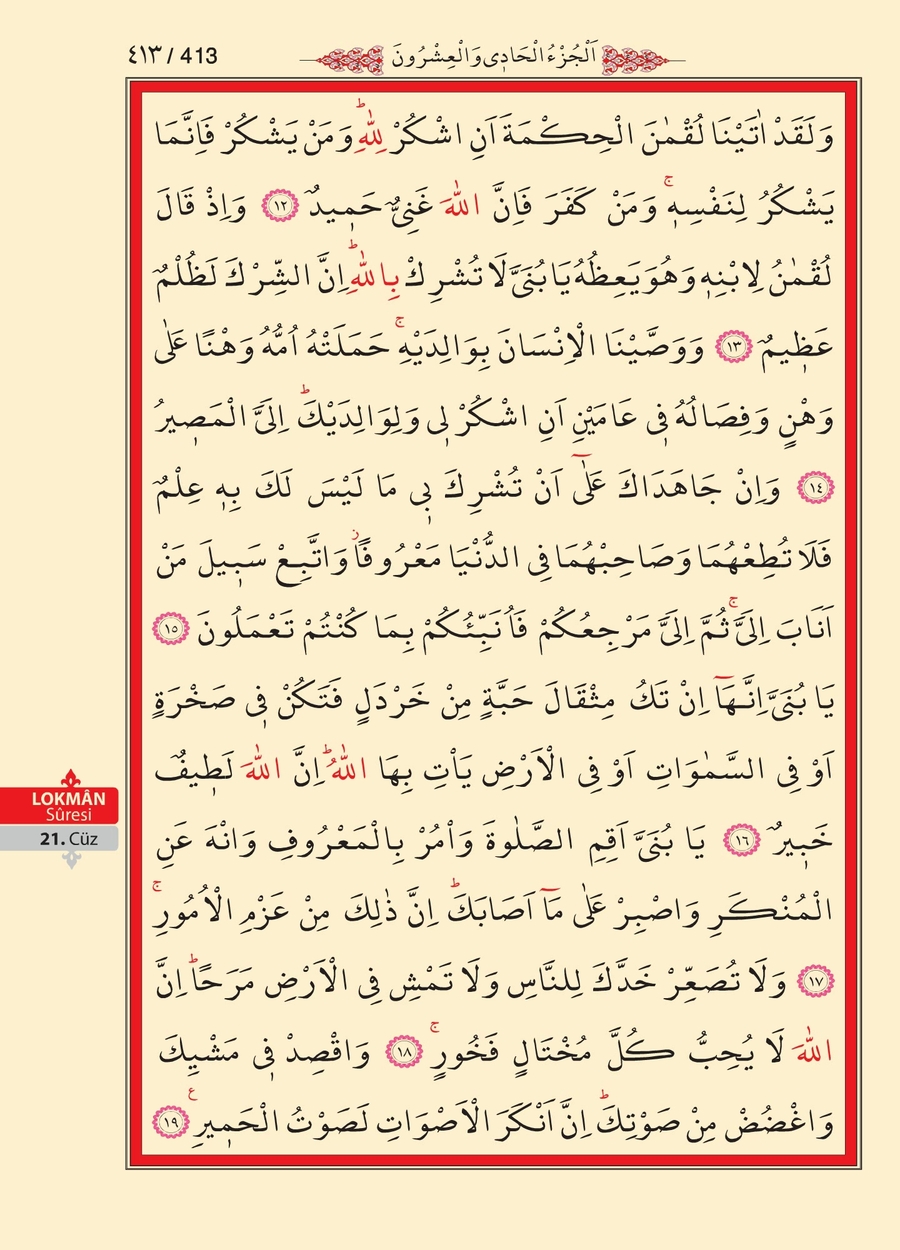 ٤١٣ / 413
اَلْجُزْءُ الْحَادِي وَالْعِشْرُونَ
وَلَقَدْ اٰتَيْنَا لُقْمٰنَ الْحِكْمَةَ اَنِ اشْكُرْ لِلّٰهِۜ وَمَنْ يَشْكُرْ فَاِنَّمَا
يَشْكُرُ لِنَفْسِه۪ۚ وَمَنْ كَفَرَ فَاِنَّ اللّٰهَ غَنِيٌّ حَم۪يدٌ ﴿١٢﴾ وَاِذْ قَالَ
لُقْمٰنُ لِابْنِه۪ وَهُوَ يَعِظُهُ يَا بُنَيَّ لَا تُشْرِكْ بِاللّٰهِۜ اِنَّ الشِّرْكَ لَظُلْمٌ
عَظ۪يمٌ ﴿١٣﴾ وَوَصَّيْنَا الْاِنْسَانَ بِوَالِدَيْهِۚ حَمَلَتْهُ اُمُّهُ وَهْنًا عَلٰى
وَهْنٍ وَفِصَالُهُ ف۪ي عَامَيْنِ اَنِ اشْكُرْ ل۪ي وَلِوَالِدَيْكَۜ اِلَيَّ الْمَص۪يرُ
﴿١٤﴾ وَاِنْ جَاهَدَاكَ عَلٰٓى اَنْ تُشْرِكَ ب۪ي مَا لَيْسَ لَكَ بِه۪ عِلْمٌ
فَلَا تُطِعْهُمَا وَصَاحِبْهُمَا فِي الدُّنْيَا مَعْرُوفًاۘ وَاتَّبِعْ سَب۪يلَ مَنْ
اَنَابَ اِلَيَّۚ ثُمَّ اِلَيَّ مَرْجِعُكُمْ فَاُنَبِّئُكُمْ بِمَا كُنْتُمْ تَعْمَلُونَ ﴿١٥﴾
يَا بُنَيَّ اِنَّهَٓا اِنْ تَكُ مِثْقَالَ حَبَّةٍ مِنْ خَرْدَلٍ فَتَكُنْ ف۪ي صَخْرَةٍ
اَوْ فِي السَّمٰوَاتِ اَوْ فِي الْاَرْضِ يَأْتِ بِهَا اللّٰهُۜ اِنَّ اللّٰهَ لَط۪يفٌ
خَب۪يرٌ ﴿١٦﴾ يَا بُنَيَّ اَقِمِ الصَّلٰوةَ وَأْمُرْ بِالْمَعْرُوفِ وَانْهَ عَنِ
الْمُنْكَرِ وَاصْبِرْ عَلٰى مَٓا اَصَابَكَۜ اِنَّ ذٰلِكَ مِنْ عَزْمِ الْاُمُورِۚ
﴿١٧﴾ وَلَا تُصَعِّرْ خَدَّكَ لِلنَّاسِ وَلَا تَمْشِ فِي الْاَرْضِ مَرَحًاۜ اِنَّ
اللّٰهَ لَا يُحِبُّ كُلَّ مُخْتَالٍ فَخُورٍۚ ﴿١٨﴾ وَاقْصِدْ ف۪ي مَشْيِكَ
وَاغْضُضْ مِنْ صَوْتِكَۜ اِنَّ اَنْكَرَ الْاَصْوَاتِ لَصَوْتُ الْحَم۪يرِ ع ﴿١٩﴾
LOKMÂN
Sûresi
21. Cüz